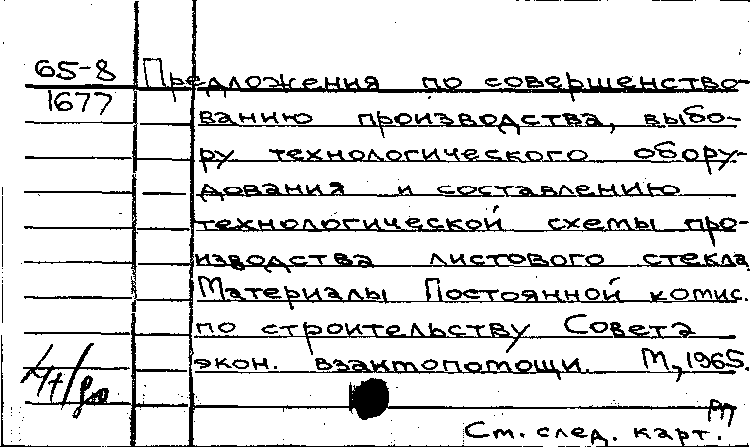 65-8
1677
Предложения по совершенство-
ванию производства, выбо-
ру технологического обору-
дования и составлению
технологической схемы про-
изводства листового стекла
Материалы Постоянной комис.
по строительству Совета
экон. взактопомощи. М, 1965.
См. след. карт.